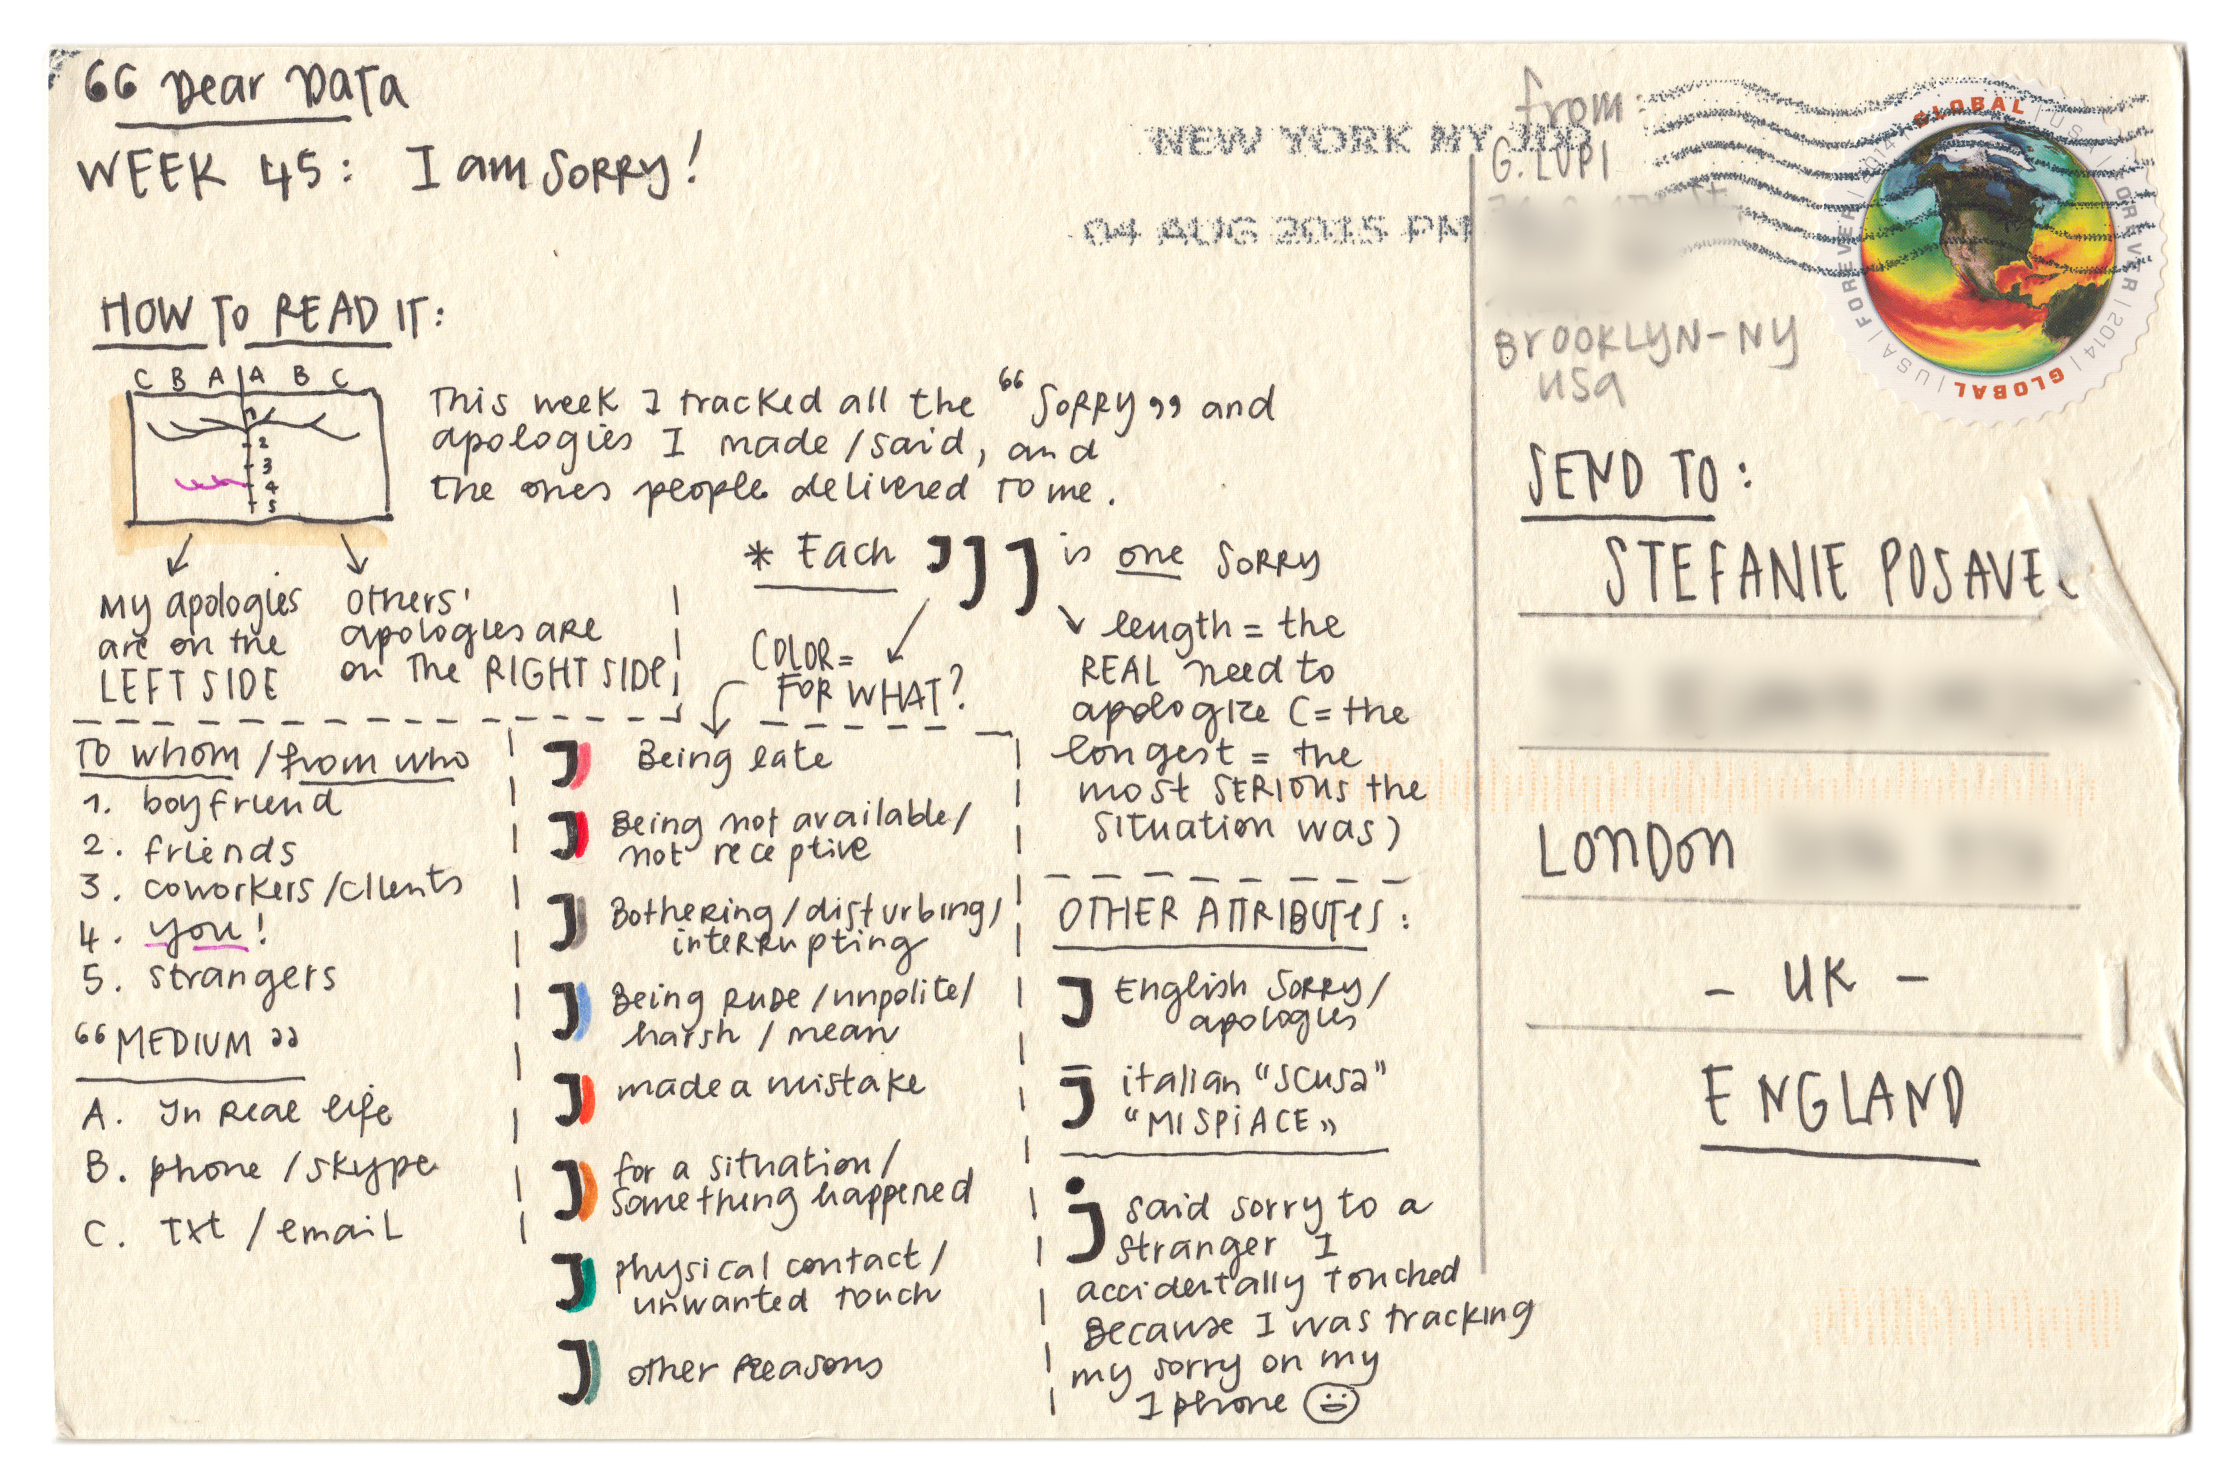 “ Dear Data
WEEK 45: I am SORRY!
HOW TO READ IT:
C B A A B C
1
2
3
4
5
This week I tracked all the “SORRY” and
apologies I made/said, and
the ones people delivered to me.
My apologies
are on the
LEFT SIDE
others'
apologies are
on the RIGHT SIDE
* Each J J J is one SORRY
COLOR =
FOR WHAT?
length = the
REAL need to
apologize (= the
longest = the
most SERIOUS the
situation was)
To whom / from who
1. boyfriend
2. friends
3. coworkers/clients
4. you!
5. strangers
“MEDIUM”
A. In Real life
B. phone / skype
C. Txt / email
Being late
Being not available/
not receptive
Bothering/disturbing/
interrupting
Being RUDE/unpolite/
harsh / mean
made a mistake
for a situation/
something happened
physical contact/
unwanted touch
other Reasons
OTHER ATTRIBUTES:
English SORRY/
apologies
italian “SCUSA”
“MI SPIACE”
said sorry to a
stranger I
accidentally touched
Because I was tracking
my sorry on my
Iphone
NEW YORK NY
04 AUG 2015 PM
from:
G. LUPI
BROOKLYN-NY
USA
GLOBAL | USA | FOREVER | 2014 | GLOBAL | USA | FOREVER | 2014
SEND TO:
STEFANIE POSAVEC
LONDON
- UK -
ENGLAND